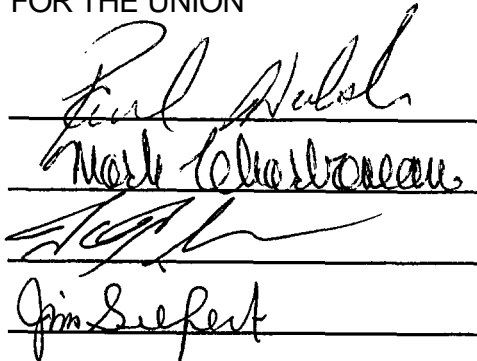 FOR THE UNION
Paul Walsh
Mark Charbonneau
Jim Siefert